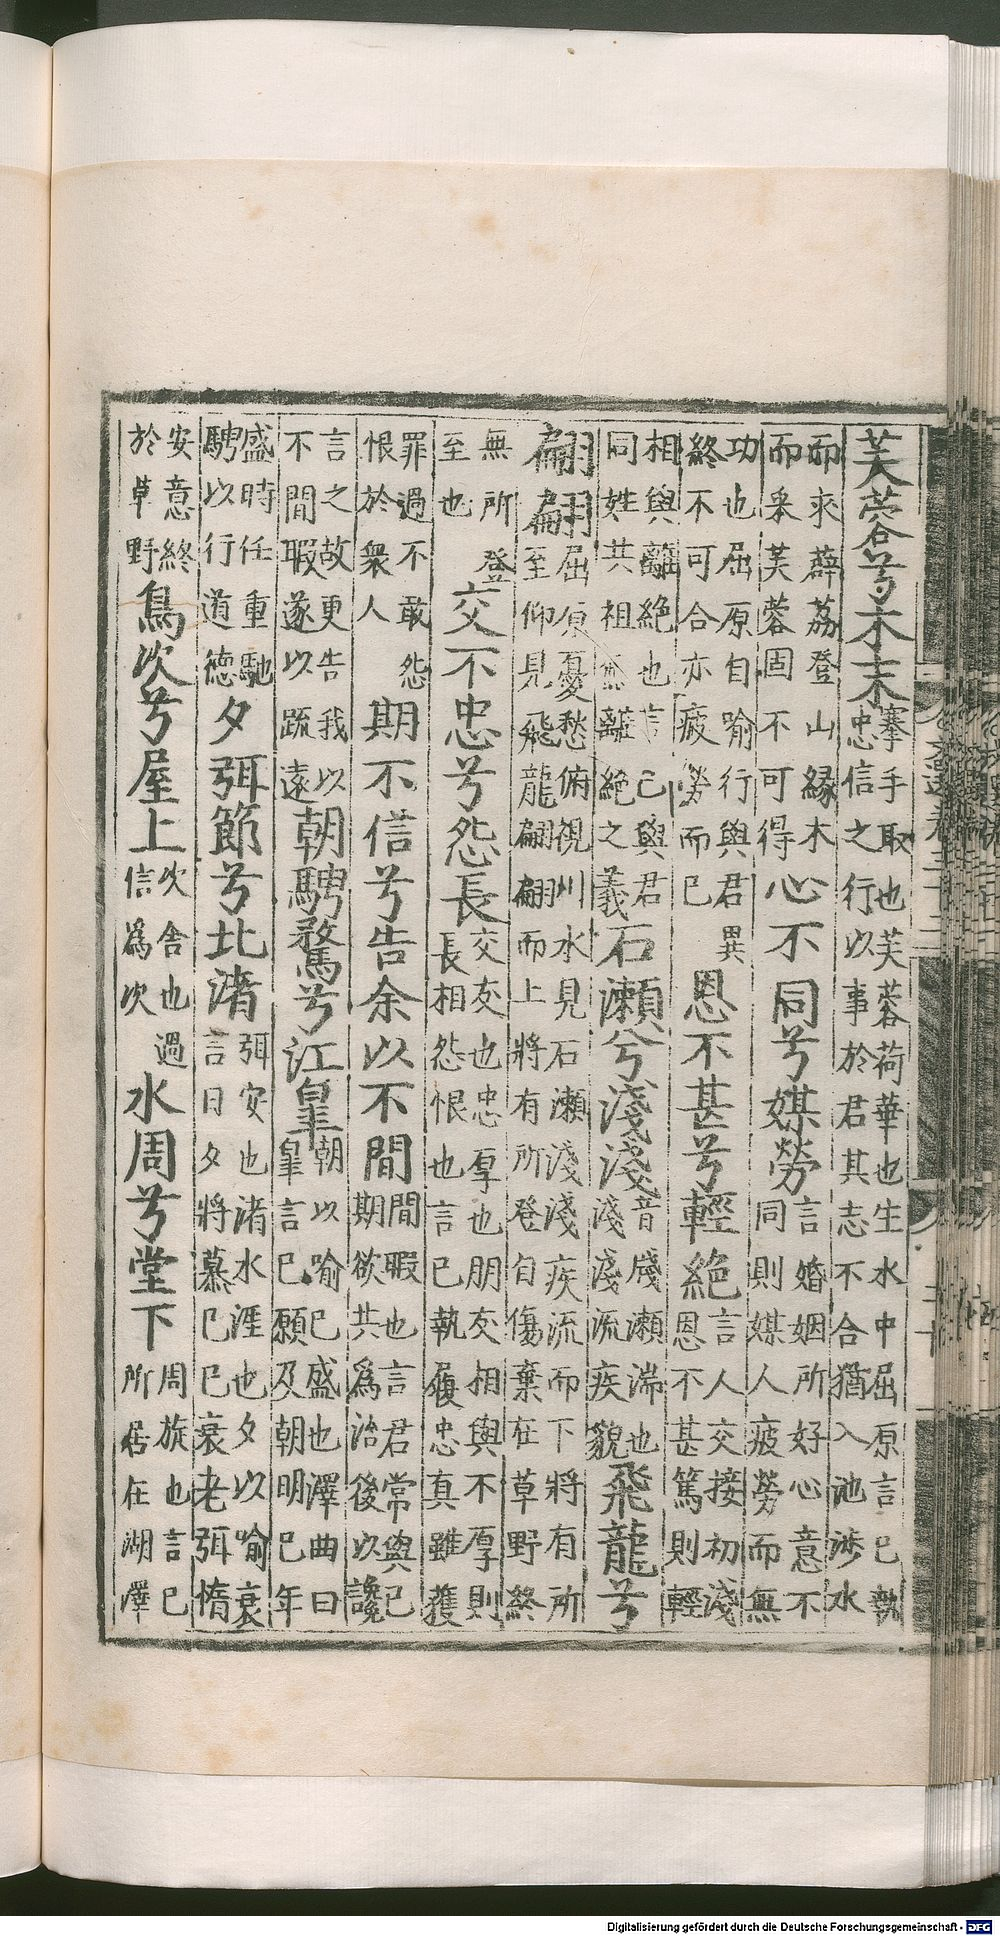 芙蓉兮木末搴手取也芙蓉荷華也生水中屈原言己執
忠信之行以事於君其志不合猶入池涉水
而求薜荔登山緣木
而采芙蓉固不可得心不同兮媒勞言婚姻所好心意不
同則媒人疲勞而無
功也屈原自喻行與君異
終不可合亦疲勞而已恩不甚兮輕絕言人交接初淺
恩不甚篤則輕
相與離絕也言己與君
同姓共祖無離絕之義石瀨兮淺淺音牋瀨湍也
淺淺流疾貌飛龍兮
翩翩屈原憂愁俯視川水見石瀨淺淺疾流而下將有所
至仰見飛龍翩翩而上將有所登自傷棄在草野終
無所登
至也交不忠兮怨長交友也忠厚也朋友相與不厚則
長相怨恨也言己執履忠真雖獲
罪過不敢怨
恨於衆人期不信兮告余以不閒閒暇也言君常與己
期欲共爲治後以讒
言之故更告我以
不閒暇遂以疏遠朝騁騖兮江皋朝以喻己盛也澤曲曰
皋言己願及朝明己年
盛時任重馳
騁以行道德夕弭節兮北渚弭安也渚水涯也夕以喻衰
言日夕將慕己已衰老弭情
安意終
於草野鳥次兮屋上次舍也過
信爲次水周兮堂下周旋也言己
所居在湖澤
Digitalisierung gefördert durch die Deutsche Forschungsgemeinschaft - DFG